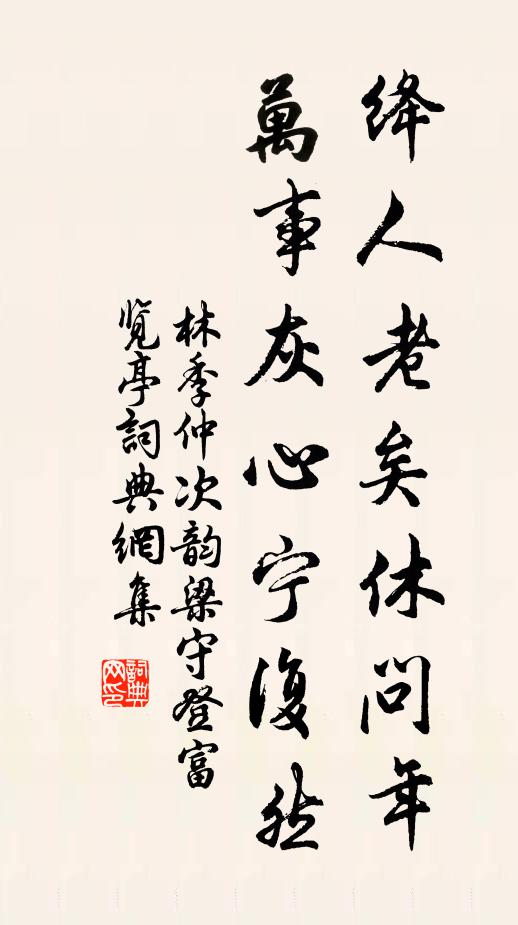 绛人老矣休问年
萬事灰心宁復然
林季仲次韵梁守登富
览亭詞典網集
詞典网印